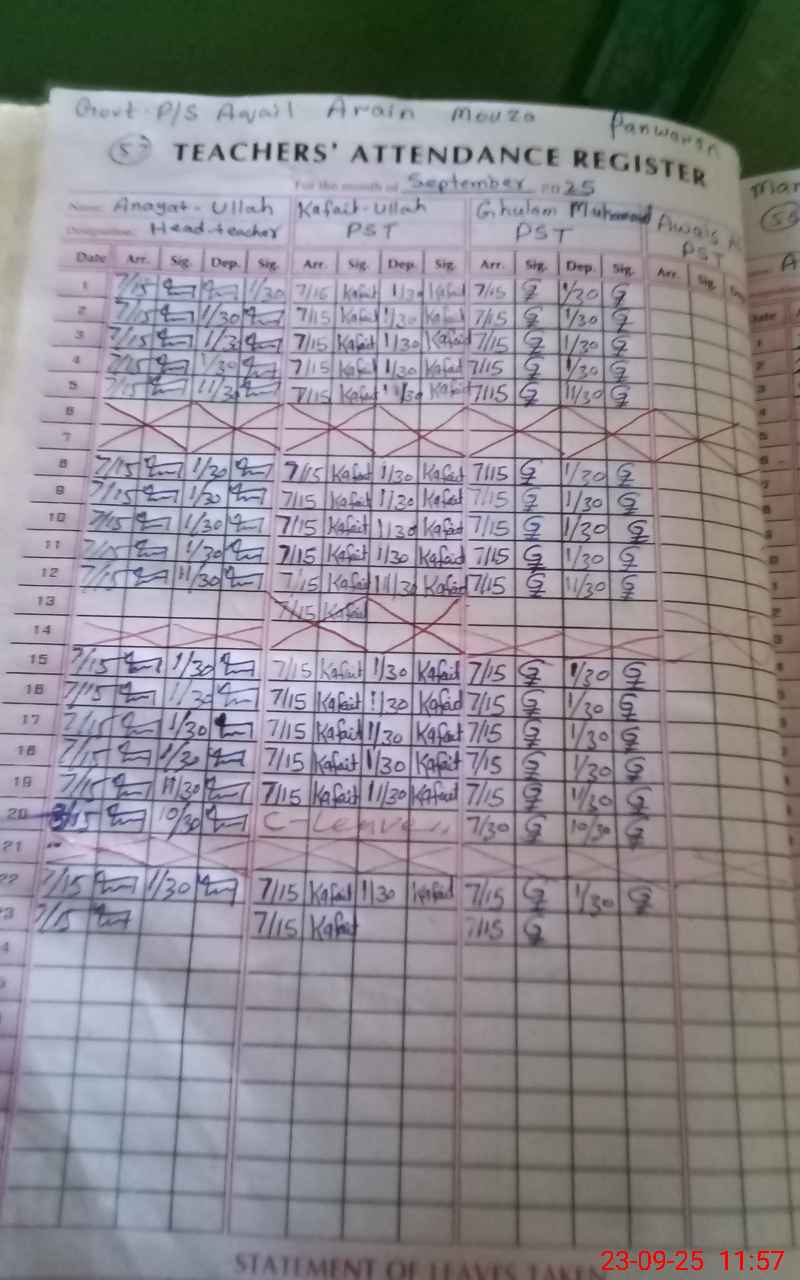 Govt. P/S Aqail Arain Mouza Panwaran
57 TEACHERS' ATTENDANCE REGISTER
For the month of September 2025
Name Anayat-Ullah Kafait-Ullah Ghulam Muhammad Awais
Designation Head-teacher PST PST PST
Date Arr. Sig. Dep. Sig. Arr. Sig. Dep. Sig. Arr. Sig. Dep. Sig. Arr. Sig.
1 7/15 1/30 7/15 Kafait 1/30 Kafait 7/15 1/30
2 7/15 1/30 7/15 Kafait 1/30 Kafait 7/15 1/30
3 7/15 1/3 7/15 Kafait 1/30 Kafait 7/15 1/30
4 7/15 1/30 7/15 Kafait 1/30 Kafait 7/15 1/30
5 7/15 11/30 7/15 Kafait 11/30 Kafait 7/15 11/30
6
7
8 7/15 1/30 7/15 Kafait 1/30 Kafait 7/15 1/30
9 7/15 1/30 7/15 Kafait 1/30 Kafait 7/15 1/30
10 7/15 1/30 7/15 Kafait 1/30 Kafait 7/15 1/30
11 7/15 1/30 7/15 Kafait 1/30 Kafait 7/15 1/30
12 7/15 11/30 7/15 Kafait 11/30 Kafait 7/15 11/30
13 7/15 Kafait
14
15 7/15 1/30 7/15 Kafait 1/30 Kafait 7/15 1/30
16 7/15 1/30 7/15 Kafait 1/30 Kafait 7/15 1/30
17 7/15 1/30 7/15 Kafait 1/30 Kafait 7/15 1/30
18 7/15 1/30 7/15 Kafait 1/30 Kafait 7/15 1/30
19 7/15 11/30 7/15 Kafait 11/30 Kafait 7/15 11/30
20 10/30 C-Leave 7/30 10/30
21
22 7/15 1/30 7/15 Kafait 1/30 Kafait 7/15 1/30
3 7/15 7/15 Kafait 7/15
4
STATEMENT OF LEAVES TAKEN
23-09-25 11:57